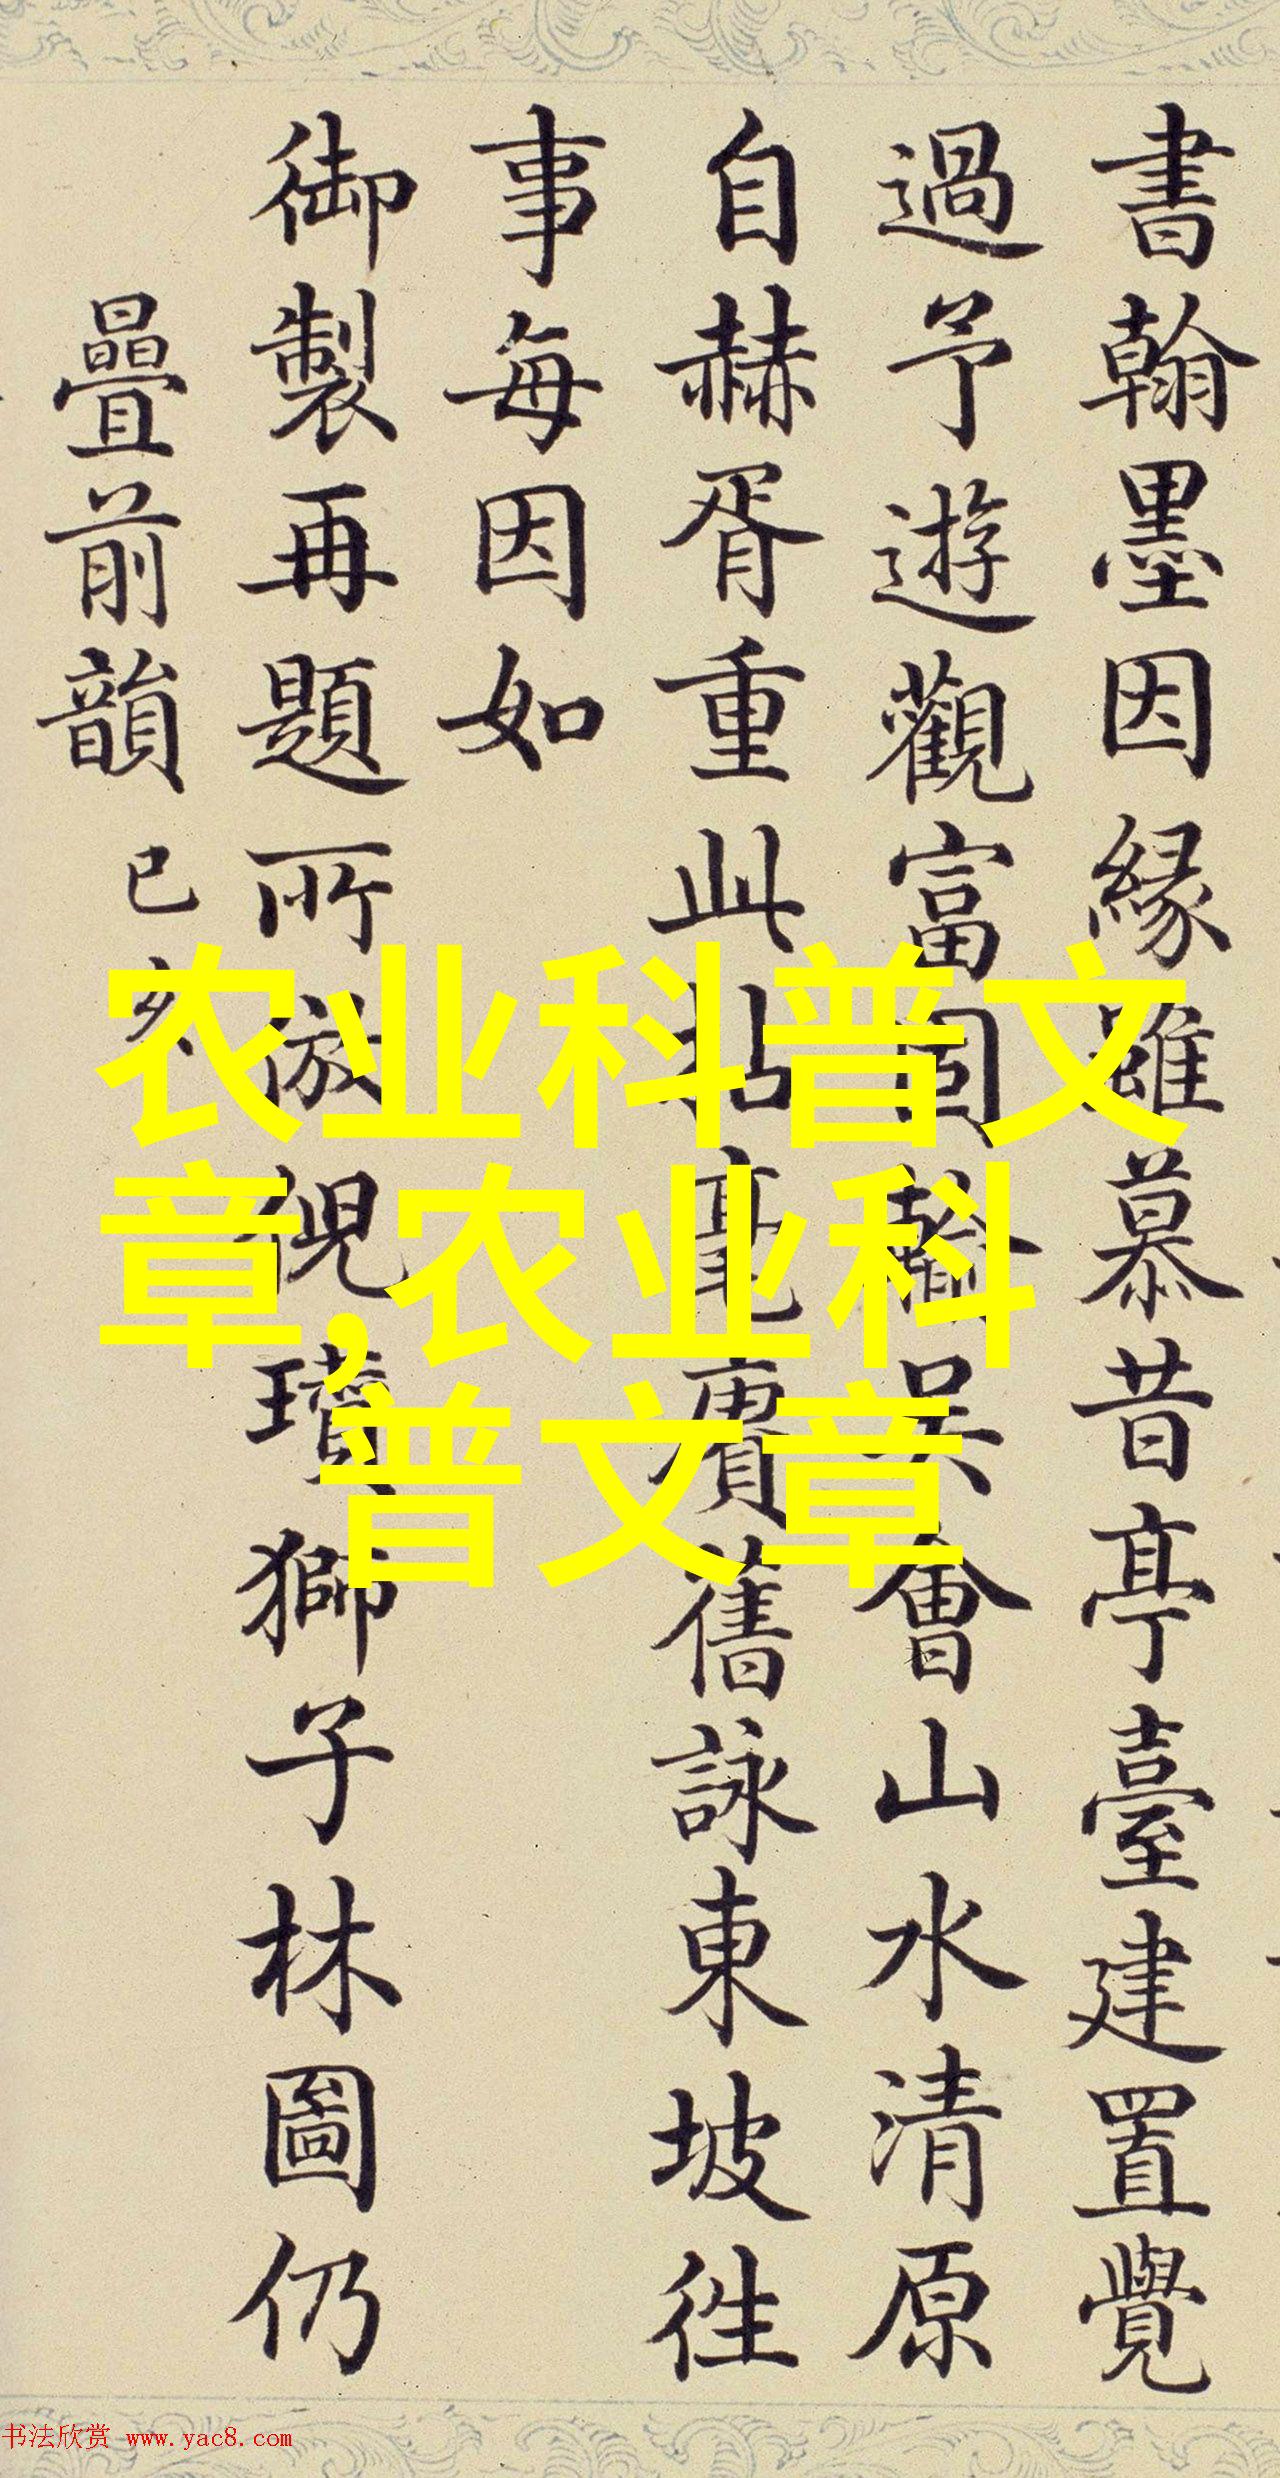 書翰墨因緣雖慕昔亭臺建置覺
過予遊觀富固輸吳會山水清原
自赫胥重此拈毫賡舊詠東坡往
事每因如
御製再題所倣倪瓚獅子林圖仍
疊前韻 已亥
农业科普文
章,农业科
普文章
书法欣赏 www.yac8.com